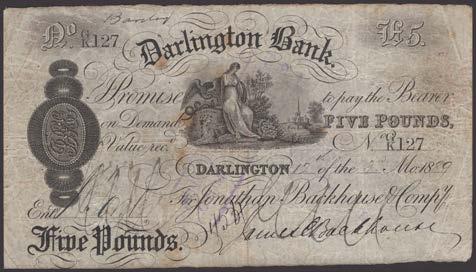 Barclay
No G/K127 £5.
Darlington Bank.
I Promise to pay the Bearer
on Demand FIVE POUNDS,
Value recd. No G/K127
DARLINGTON 12th of the Mo. 1829
For Jonathan Backhouse & Compy.
Entd
Five Pounds. James E Backhouse